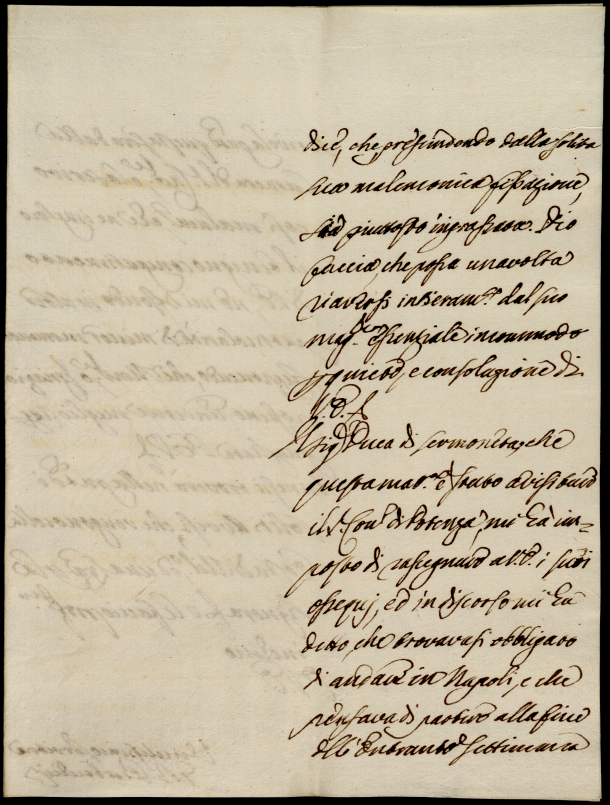 dice, che prescindendo dalla solita
sua malenconica fissazione,
sia piuttosto ingrassata. Dio
faccia che possa una volta
riaversi interam.te dal suo
essenziale incommodo
p quiete, e consolazione di
V. E.
Il Sig.r Duca di Sermoneta, che
questa mat.na è stato a visitare
il S. Con.e di Potenza, mi hà im=
posto di rassegnare a V.E. i suoi
ossequj, ed in discorso mi hà
detto, che trovavasi obbligato
di andare in Napoli, e che
pensava di partire alla fine
dell'entrante settimana